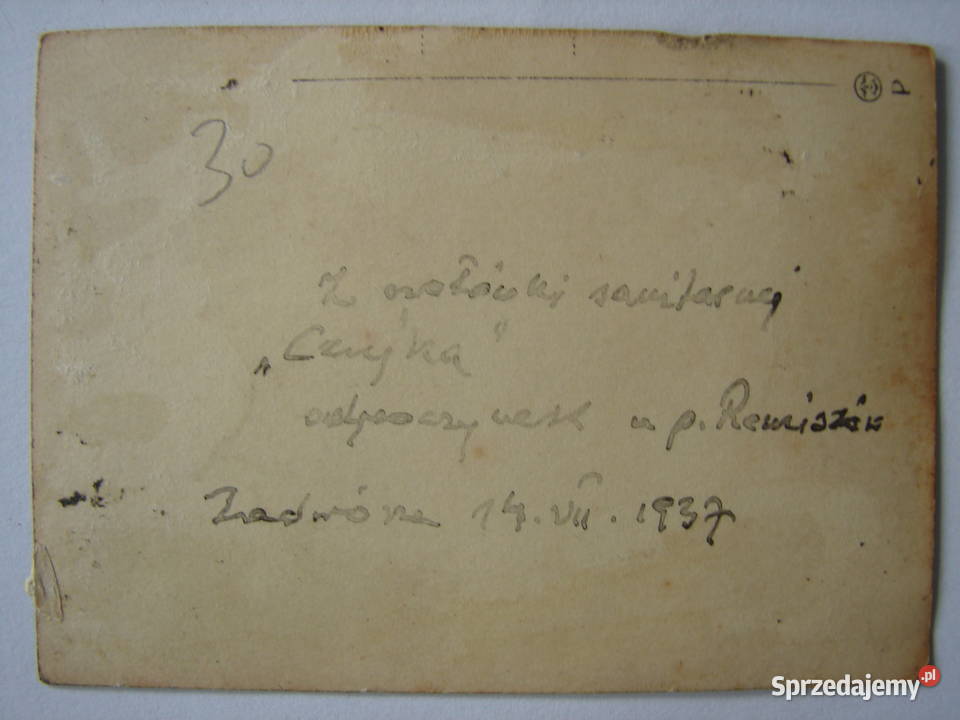 P
30
Z czołówki sanitarnej
„Czujka”
odpoczynek u p. Remiszów
Zadwórze 14.VII.1937
Sprzedajemy.pl